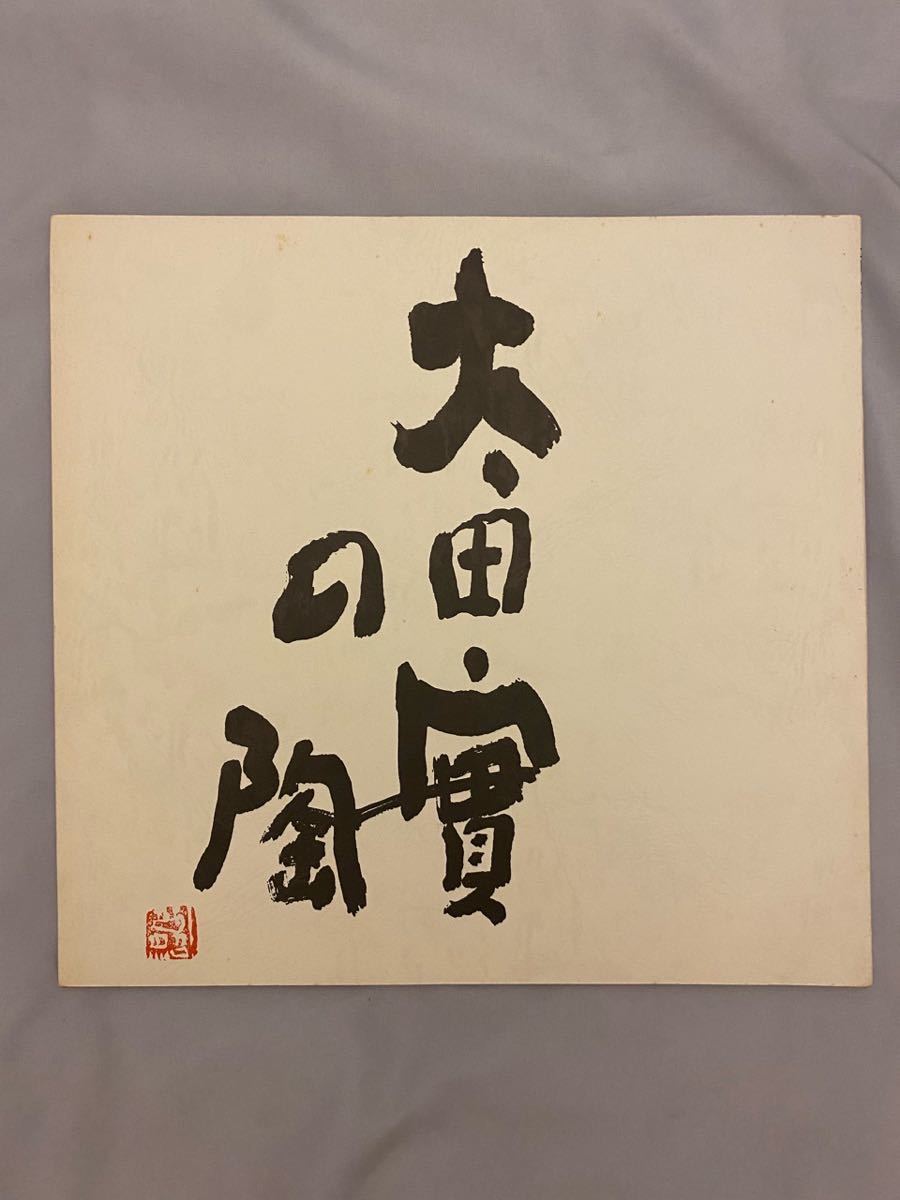 太田實
の陶